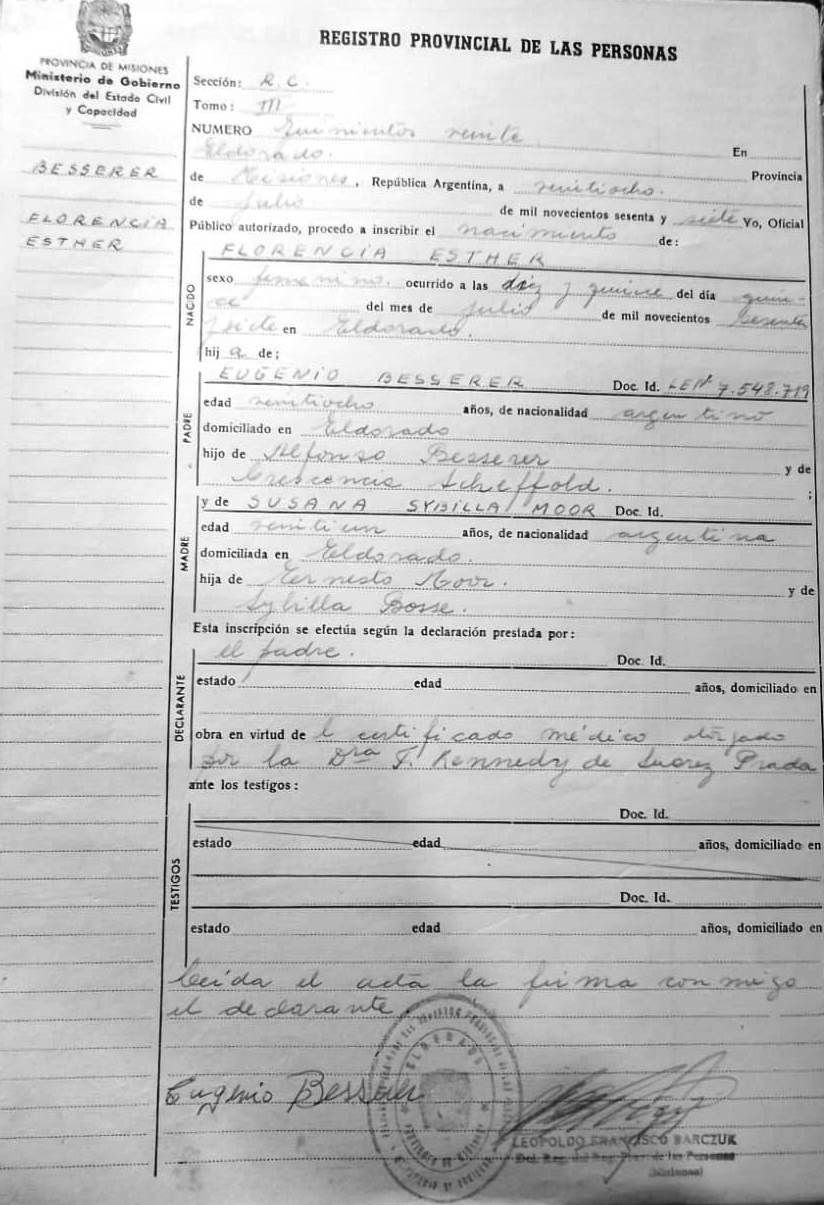 REGISTRO PROVINCIAL DE LAS PERSONAS
PROVINCIA DE MISIONES
Ministerio de Gobierno
División del Estado Civil
y Capacidad
BESSERER
FLORENCIA
ESTHER
Sección: R.C.
Tomo: III
NUMERO Quinientos veinte
Eldorado. En
de Misiones, República Argentina, a veintiocho. Provincia
de Julio de mil novecientos sesenta y siete Yo, Oficial
Público autorizado, procedo a inscribir el nacimiento de:
NACIDO
FLORENCIA ESTHER
sexo femenino. ocurrido a las diez y quince del día quin-
ce del mes de Julio de mil novecientos sesenta
y siete en Eldorado.
hij a de;
PADRE
EUGENIO BESSERER Doc. Id. LENº 7.548.719
edad veintiocho años, de nacionalidad argentino
domiciliado en Eldorado
hijo de Alfonso Besserer y de
Crescencia Scheffold. ;
MADRE
y de SUSANA SYBILLA MOOR Doc. Id.
edad veintiun años, de nacionalidad argentina
domiciliada en Eldorado.
hija de Ernesto Moor. y de
Sybilla Bosse.
Esta inscripción se efectúa según la declaración prestada por:
DECLARANTE
el padre. Doc. Id.
estado edad años, domiciliado en
obra en virtud de l certificado médico otorgado
por la Dra F. Kennedy de Suarez Prada
ante los testigos:
TESTIGOS
Doc. Id.
estado edad años, domiciliado en
Doc. Id.
estado edad años, domiciliado en
Leída el acta la firma conmigo
el declarante.
ELDORADO
Eugenio Besserer
LEOPOLDO FRANCISCO BARCZUK
Del. Reg. del Reg. Prov. de las Personas
(Misiones)